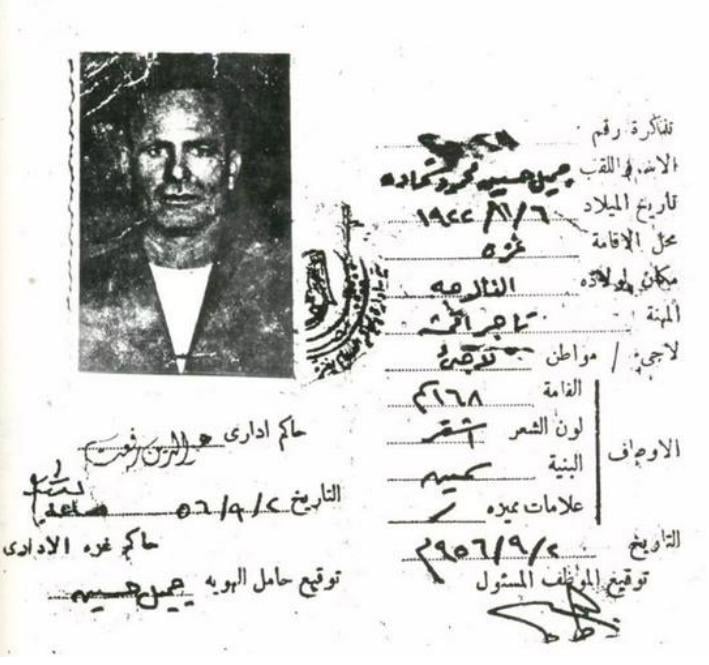 تذكرة رقم
الاسم واللقب جميل حسين محمود حماده
تاريخ الميلاد ١٩٢٢/٦/٦
محل الاقامة غزه
مكان الولادة
المهنة تاجر
لاجىء / مواطن لاجئ
الاوصاف
القامة ١٦٨
لون الشعر اشقر
البنية
علامات مميزه
التاريخ ٩٥٦/٩/٢م
توقيع الموظف المسئول
حاكم ادارى الدين رفعت
التاريخ ٥٦/٩/٢
حاكم غزه الادارى
توقيع حامل الهويه جميل حسين